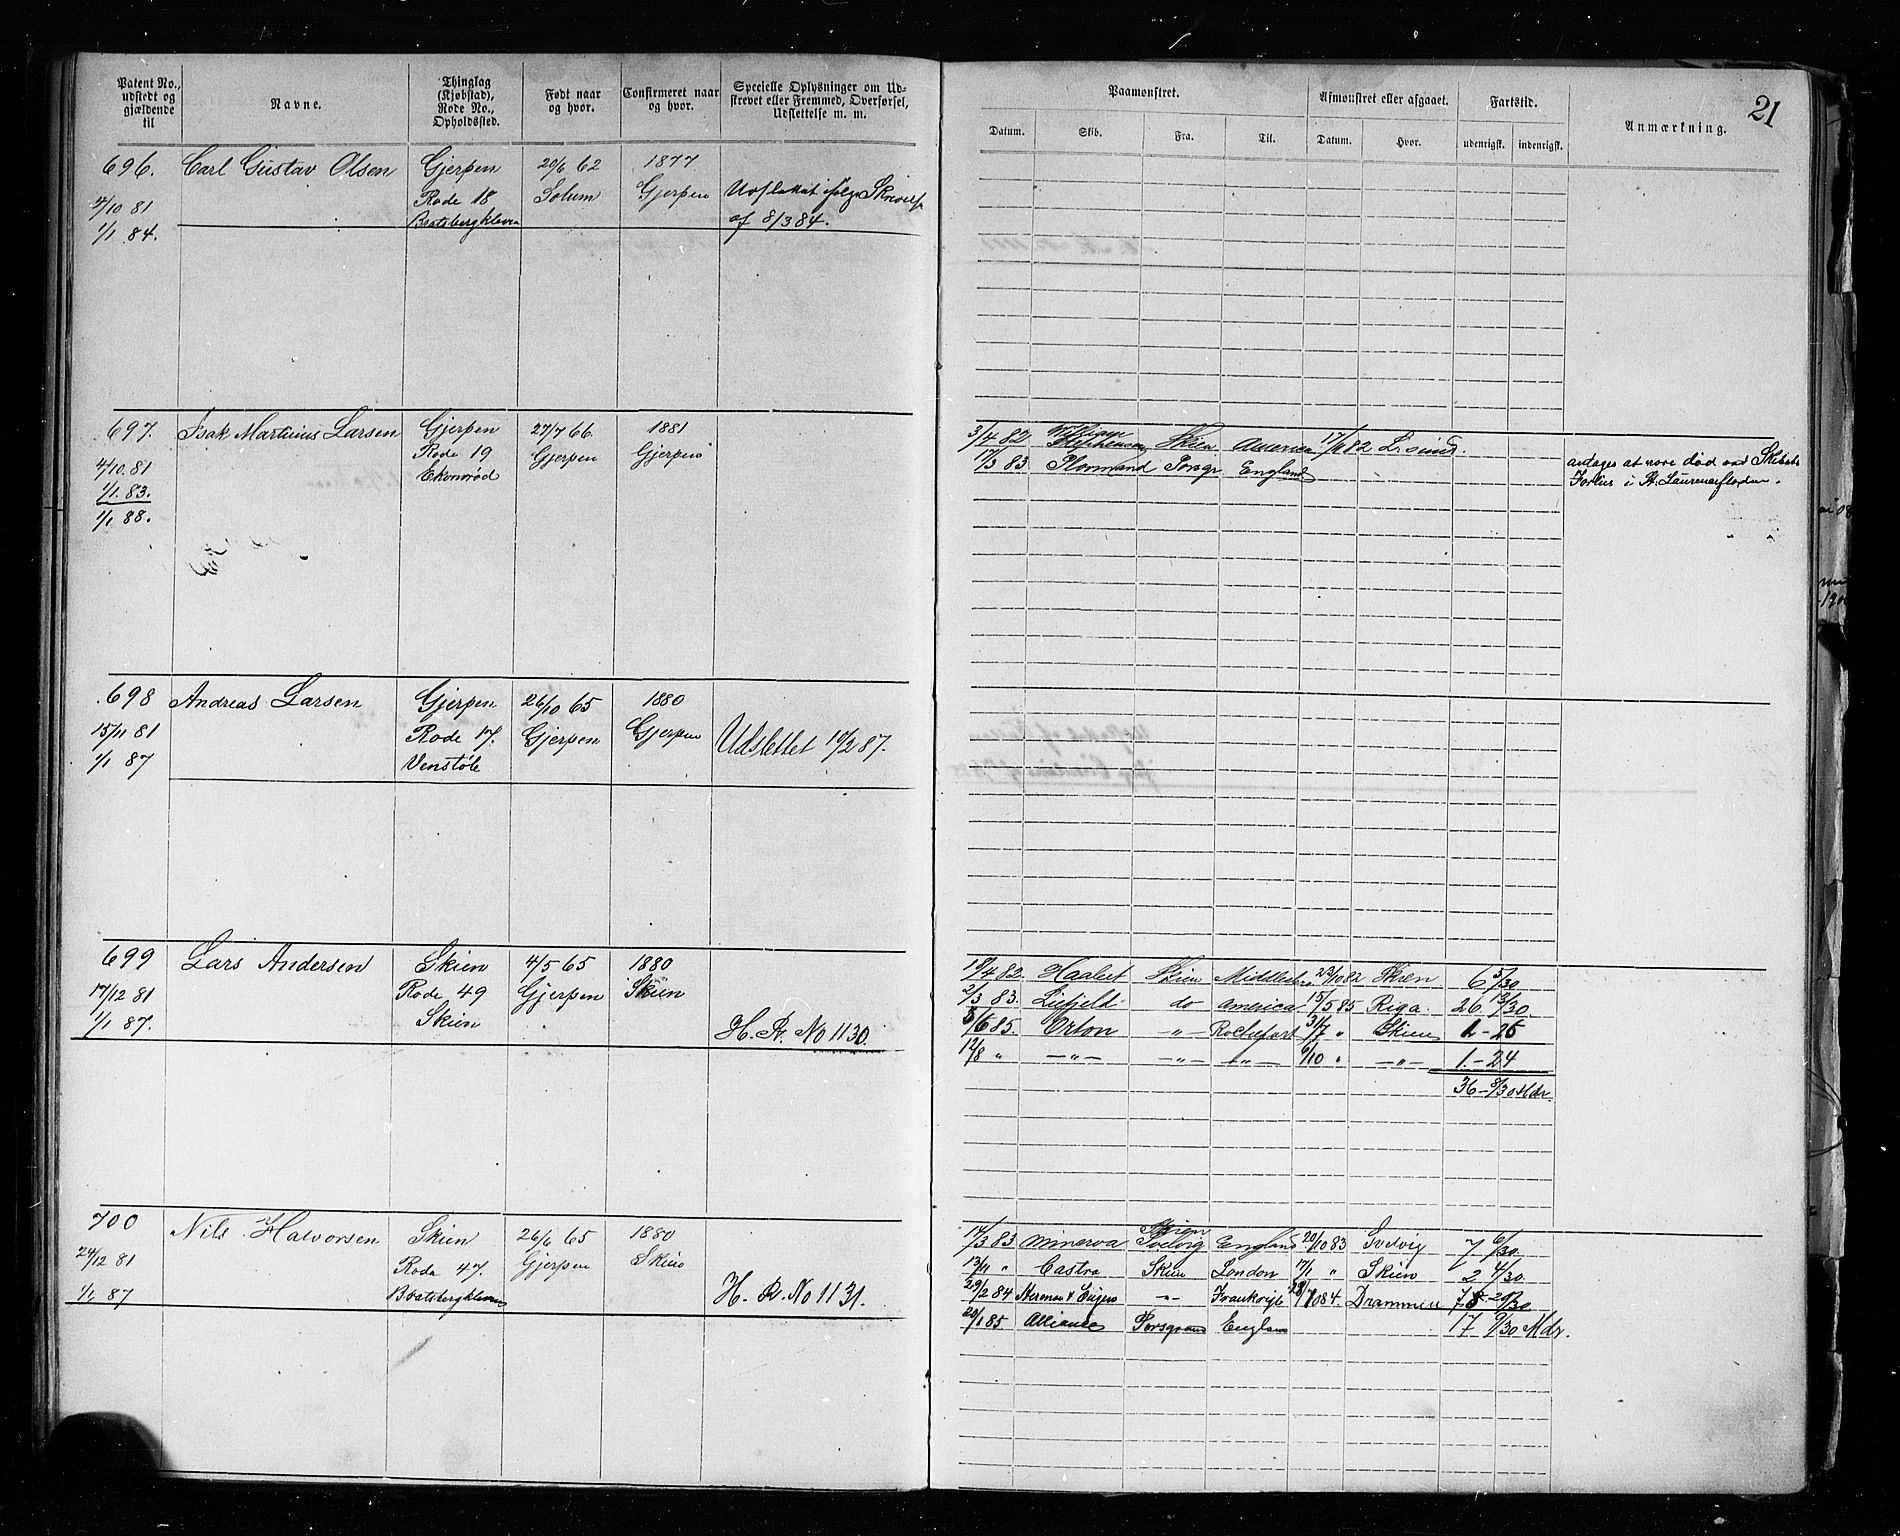 Patent No., udstedt og gjældende til
Navne.
Thinglag (Kjøbstad), Rode No., Opholdssted.
Født naar og hvor.
Confirmeret naar og hvor.
Specielle Oplysninger om Udskrevet eller Fremmed, Overførsel, Udslettelse m. m.
Paamønstret.
Afmønstret eller afgaaet.
Fartstid.
Anmærkning.
21
Datum. Skib. Fra. Til. Datum. Hvor. udenrigsk. indenrigsk.
696. Carl Gustav Olsen Gjerpen 20/6 62 1877
4/10 81 Rode 18 Solum Gjerpen Udslettet ifølge
1/1 84. Bratsbergkleven af 8/3 84.
697. Isak Martinius Larsen Gjerpen 27/7 66 1881
4/10. 81 Rode 19 Gjerpen Gjerpen
1/1. 83. Ekornrød
1/1 88.
3/4 82. Skien America 17/6 82
17/3 83 Porsgr England
antages at være død ved Skibets
Forlis i St.
698 Andreas Larsen Gjerpen 26/10 65 1880
15/11 81 Rode 17. Gjerpen Gjerpen Udslettet 19/2 87.
1/1 87 Venstøb
699 Lars Andersen Skien 4/5 65 1880
17/12 81 Rode 49 Gjerpen Skien
1/1 87. Skien H. R. No 1130.
19/4 82. Skien 23/10 82 Skien 6 5/30
2/3 83. Liefjeld do America 15/5 85 Riga. 26. 13/30
5/6 85. Orton -"- Rochefort 31/7 " Skien 1 - 25
12/8 " -"- -"- -"- 6/10 " -"- 1. - 24
36 - 8/30 Mdr.
700 Nils Halvorsen Skien 26/6 65 1880
24/12 81 Rode 47. Gjerpen Skien
1/1 87 Bratsbergkleven H. R. No 1131.
Skien
17/3 83 Minerva Svelvig England 20/10 83 Svelvig 7 6/30
13/11 " Castro Skien London 17/1 " Skien 2 4/30
29/2 84 -"- 84. Drammen
20/1 85. Alliance Porsgrund England 17 9/30 Mdr.